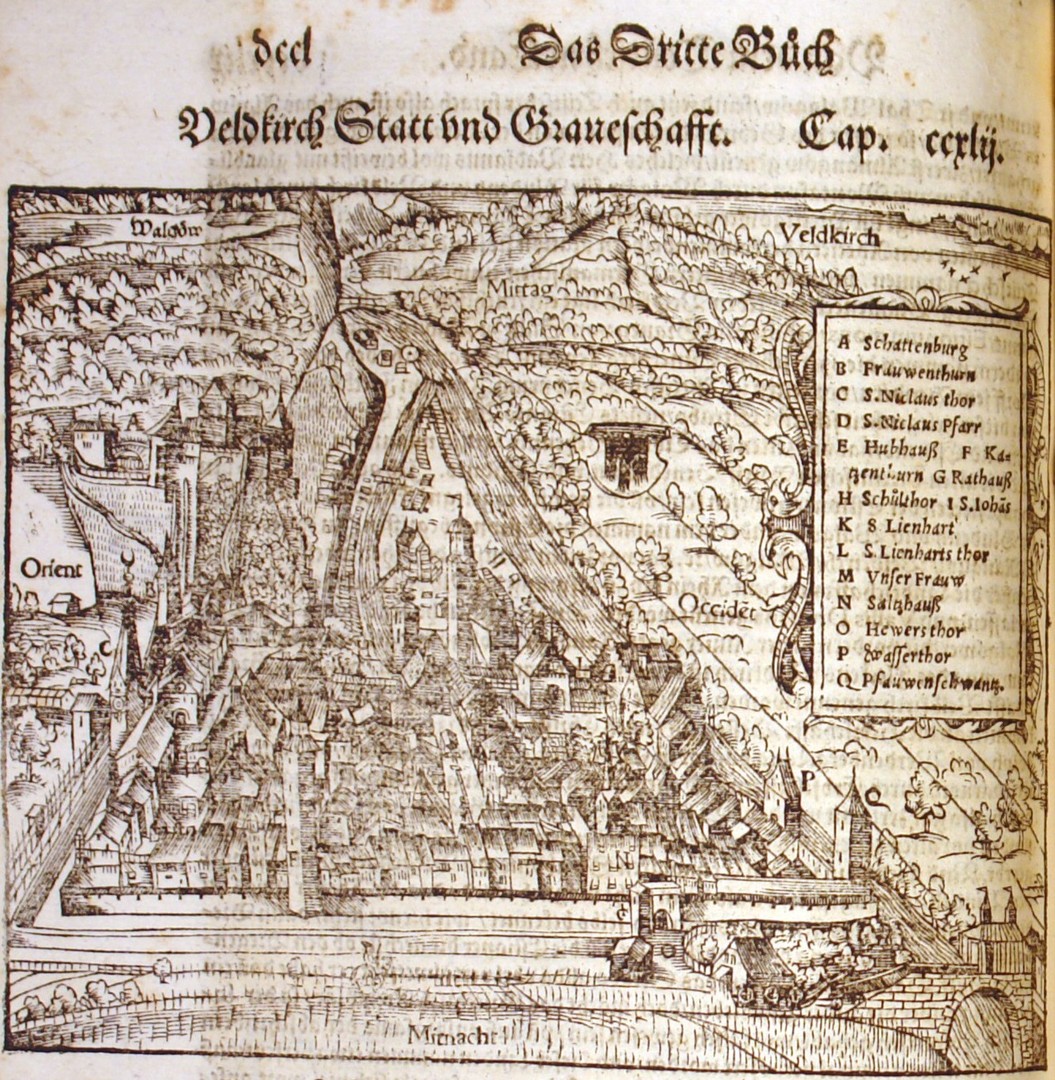 dccl Das Dritte Bůch
Veldkirch Statt vnd Graueschafft. Cap. ccxlij.
Veldkirch
Mittag
A Schattenburg
B Frauwenthurn
C S.Niclaus thor
D S.Niclaus Pfarr
E Hubhauß F Ka=
tzenthurn G Rathauß
H Schůlthor I S.Iohãs
K S Lienhart
L S.Lienharts thor
M Vnser Frauw
N Saltzhauß
O Hewers thor
P Wasserthor
Q Pfauwenschwantz.
Orient
Occidẽt
C
P
N
Mitnacht